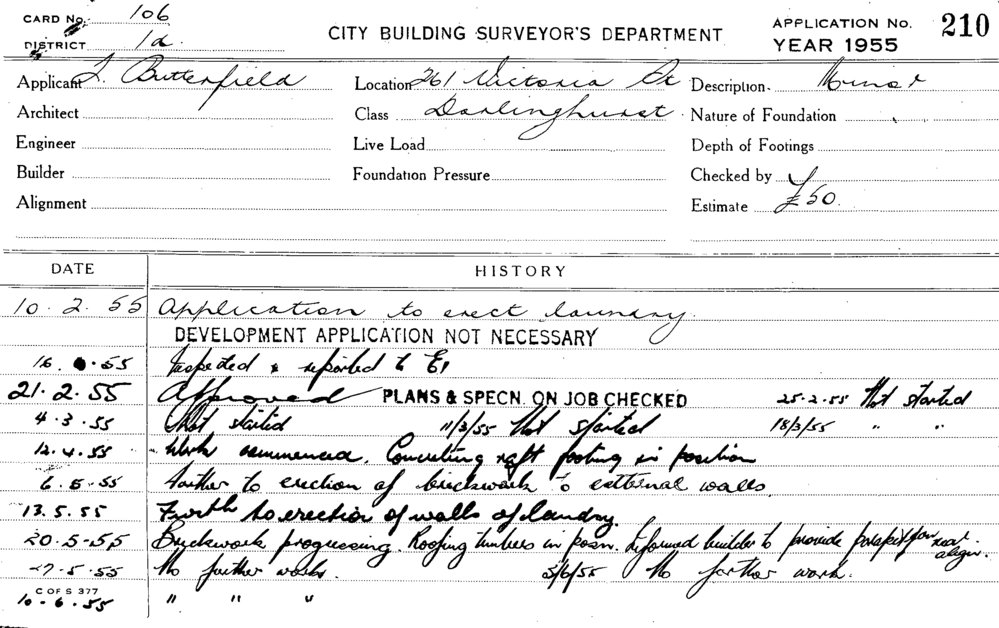 CARD No. 106
DISTRICT 1d.
CITY BUILDING SURVEYOR'S DEPARTMENT
APPLICATION No. 210
YEAR 1955
Applicant L. Butterfield Location 261 Victoria St Description. Minor
Architect Class Darlinghurst Nature of Foundation
Engineer Live Load Depth of Footings
Builder Foundation Pressure Checked by
Alignment Estimate £50.
DATE HISTORY
10.2.55 Application to erect laundry.
DEVELOPMENT APPLICATION NOT NECESSARY
16. .55 Inspected & reported to
21.2.55 Approved PLANS & SPECN. ON JOB CHECKED 25-2-55 Not started
4.3.55 Not started 11/3/55 Not started 18/3/55 " "
12.4.55 Work commenced. Concreting raft footing in position
6.5.55 Further to erection of brickwork to external walls.
13.5.55 Furth to erection of walls of laundry.
20.5.55 Brickwork progressing. Roofing timbers in posn. Informed builder to provide parapet for rear align.
27.5.55 No further work. 3/6/55 No further work.
C OF S 377
10.6.55 " " "